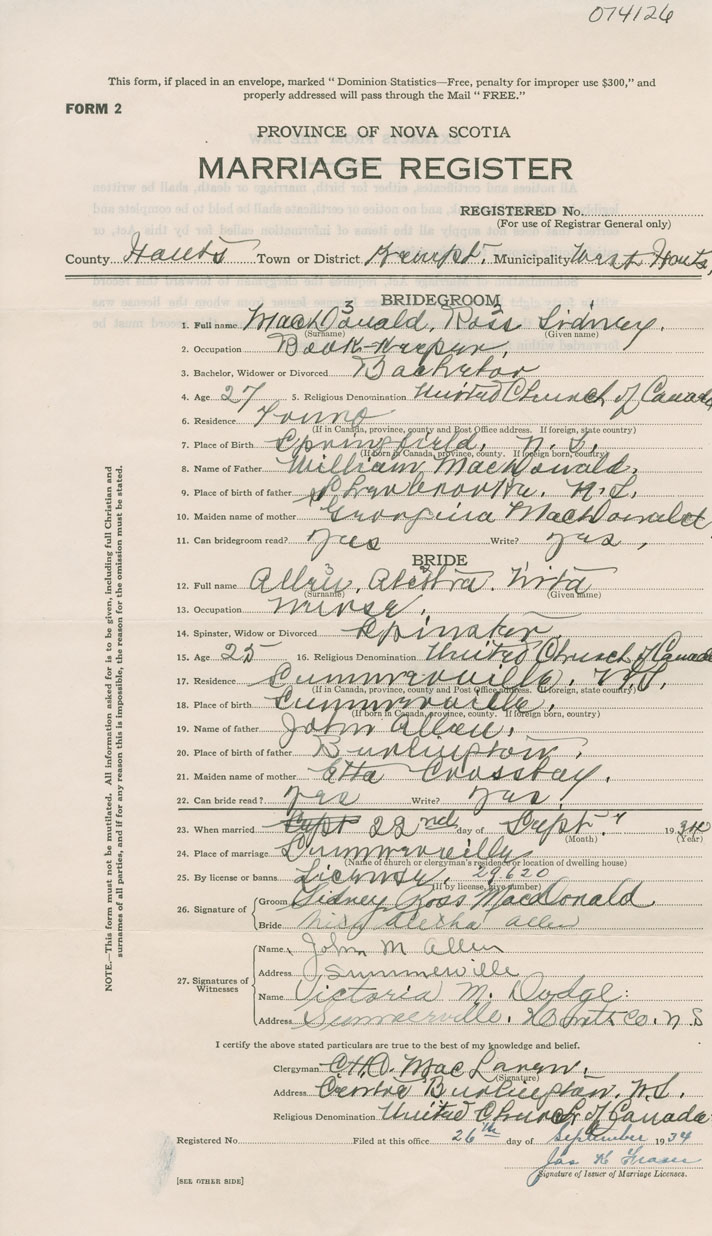 074126
This form, if placed in an envelope, marked “Dominion Statistics—Free, penalty for improper use $300,” and
properly addressed will pass through the Mail “FREE.”
FORM 2
PROVINCE OF NOVA SCOTIA
MARRIAGE REGISTER
REGISTERED No.
(For use of Registrar General only)
County Hants Town or District Kempt. Municipality West Hants,
BRIDEGROOM
1. Full name MacDonald, Ross Sidney.
(Surname) (Given name)
2. Occupation Book-keeper,
3. Bachelor, Widower or Divorced Bachelor
4. Age 27 5. Religious Denomination United Church of Canada
6. Residence
(If in Canada, province, county and Post Office address. If foreign, state country)
7. Place of Birth Springfield, N.S.
(If born in Canada, province, county. If foreign born, country)
8. Name of Father William MacDonald.
9. Place of birth of father N.S.
10. Maiden name of mother Georgina MacDonald
11. Can bridegroom read? Yes Write? Yes,
BRIDE
12. Full name Allen, Alethra.
(Surname) (Given name)
13. Occupation Nurse,
14. Spinster, Widow or Divorced Spinster,
15. Age 25 16. Religious Denomination United Church of Canada
17. Residence Summerville, N.S.
(If in Canada, province, county and Post Office address. If foreign, state country)
18. Place of birth Summerville,
(If born in Canada, province, county. If foreign born, country)
19. Name of father John Allen,
20. Place of birth of father Burlington,
21. Maiden name of mother Etta Crossley.
22. Can bride read? Yes Write? Yes!
23. When married 22nd day of Sept. 1934
(Month) (Year)
24. Place of marriage Summerville
(Name of church or clergyman's residence or location of dwelling house)
25. By license or banns License, 29620
(If by license, give number)
26. Signature of
Groom Sidney Ross MacDonald
Bride Allen
27. Signatures of Witnesses
Name John M Allen
Address Summerville
Name Victoria M. Dodge
Address Summerville, Hants Co. N.S
I certify the above stated particulars are true to the best of my knowledge and belief.
Clergyman MacLaren.
(Signature)
Address Centre Burlington, N.S.
Religious Denomination United Church of Canada
Registered No. Filed at this office 26th day of September 1934
Jas H Fraser
Signature of Issuer of Marriage Licenses.
[SEE OTHER SIDE]
NOTE.—This form must not be mutilated. All information asked for is to be given, including full Christian and
surnames of all parties, and if for any reason this is impossible, the reason for the omission must be stated.